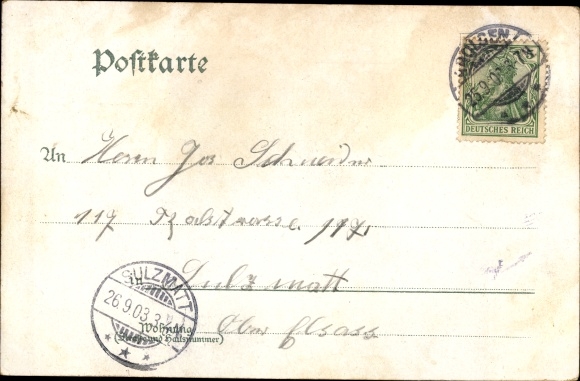 Postkarte
DEUTSCHES REICH
An Herrn Jos Schneider
117 Talstrasse 117
Sulzmatt
SULZMATT
26.9.03.
Wohnung
(Straße und Hausnummer)
Ober Elsass